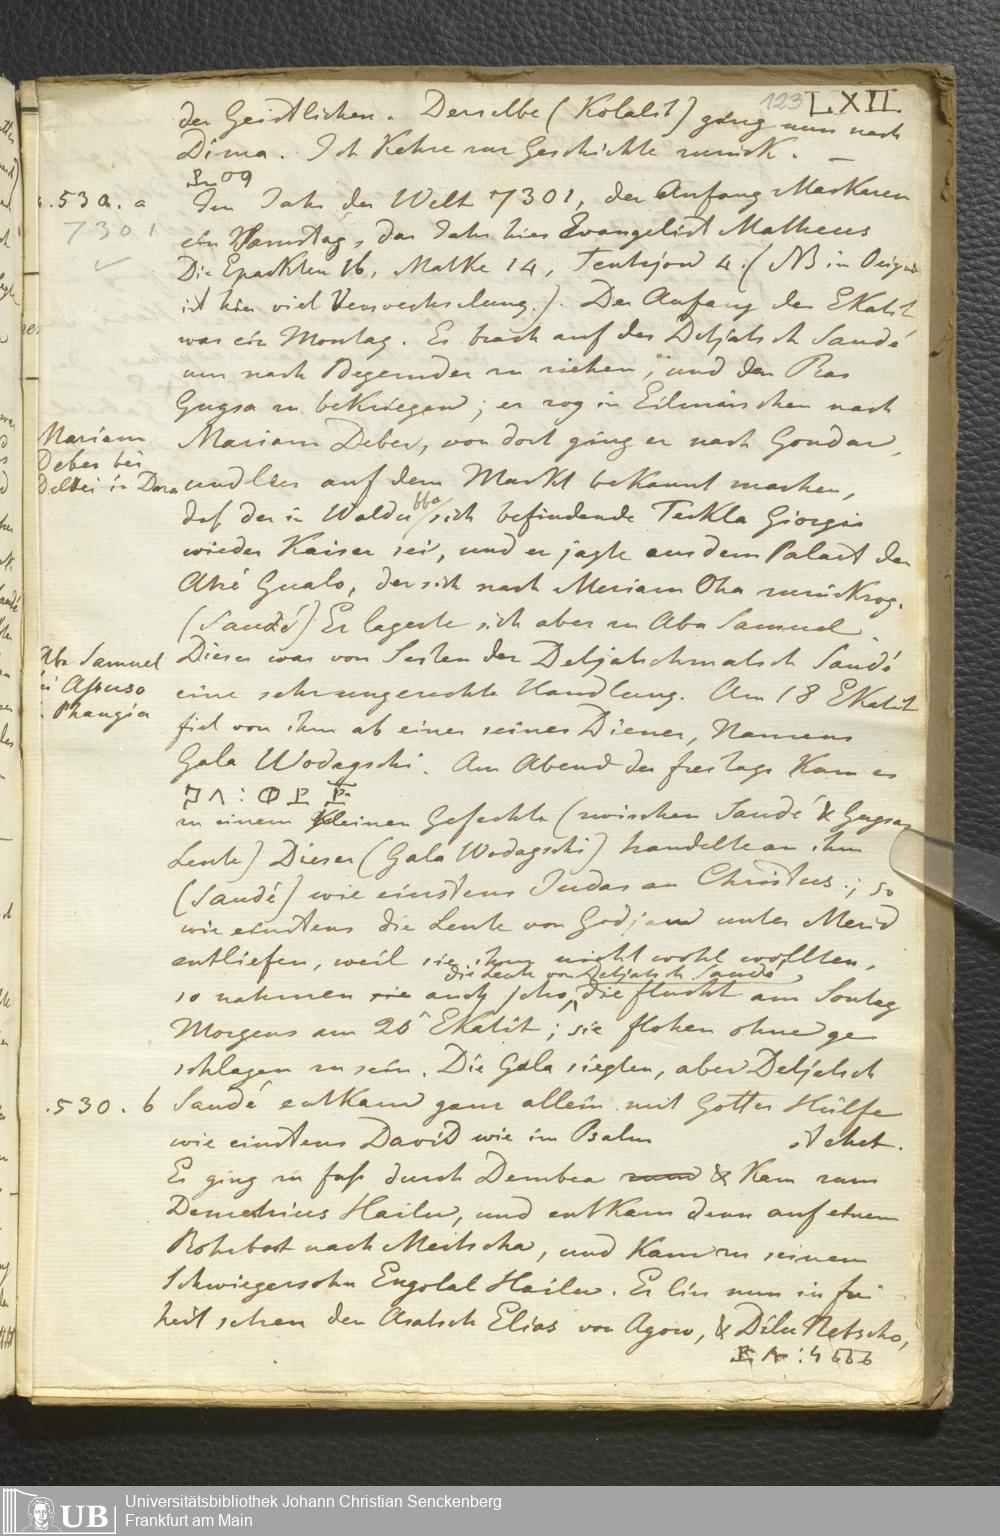 123 LXII.
der Geistlichen. Derselbe (Kolassit) ging nun nach
Dima. Ich Kehre zur Geschichte zurück. —
p. 530. a
7301
Im Jahr der Welt 7301, der Anfang Maskerem
ein Samstag, das Jahr hies Evangelist Matheus
Die Epackten 16, Matke 14, Tentejon 4. (NB im Origin
ist hier viel Verwechslung.). Der Anfang des EKatit
war ein Montag. Es brach auf der Detjatsch Saudé
um nach Begemder zu ziehen, und den Ras
Gugsa zu beKriegen; er zog in Eilmärschen nach
Mariam
Deber bei
Deldei in Dara
Mariam Deber, von dort ging er nach Gondar,
und lies auf dem Markt beKannt machen,
daß der in Waldubba sich befindende Teckla Giorgis
wieder Kaiser sei, und er jagte aus dem Palast den
Atsé Gualo, der sich nach Meriam Oha zurückzog.
(Saudé) Er lagerte sich aber zu Aba Samuel.
Aba Samuel
bei Asuso
Dieses war von Seiten des Detjatschmatsch Saudé
eine sehr ungerechte Handlung. Am 18 EKatit
fiel von ihm ab einer seiner Diener, Namens
Gala Wodagschi. Am Abend des freitags Kam es
zu einem Kleinen Gefechte (zwischen Saudé & Gugsas
Leute) Dieser (Gala Wodagschi) handelte an ihm
(Saudé) wie einstens Judas an Christus; so
wie einstens die Leute von Godjam unter Merid
entliefen, weil sie ihm nicht wohl wollten,
die Leute von Detjatsch Saudé
so nahmen sie auch jetzo, die flucht am Sontag
Morgens am 20 EKatit; sie flohen ohne ge
schlagen zu sein. Die Gala siegten, aber Detjatsch
.530. b
Saudé entKam ganz allein mit Gottes Hülfe
wie einstens David wie im Psalm stehet.
Er ging zu fuß durch Dembea & Kam zum
Demetrius Hailu, und entKam dann auf einem
Rohrboot nach Meitscha, und Kam zu seinem
Schwiegersohn Engolal Hailu. Er lies nun in frei
heit setzen den Asatsch Elias von Agow, & Dilu Netscho,
Universitätsbibliothek Johann Christian Senckenberg
Frankfurt am Main
UB